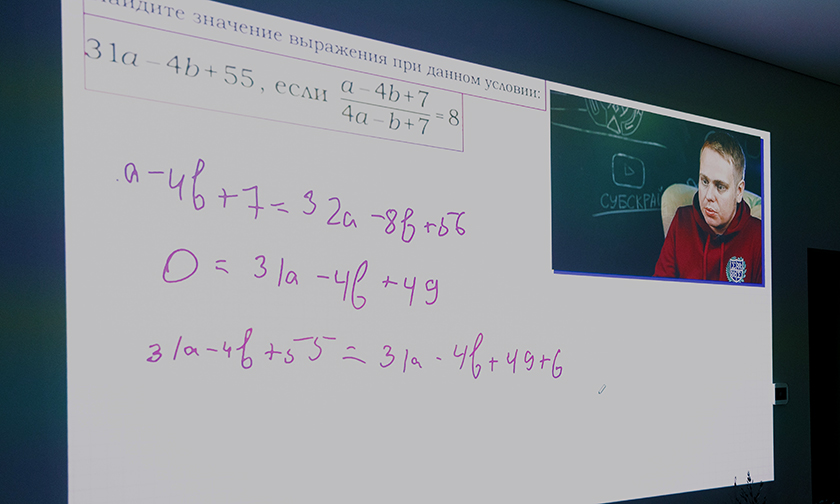 найдите значение выражения при данном условии:
31a – 4b + 55, если (a – 4b + 7)/(4a – b + 7) = 8
СУБСКРАЙ
a - 4b + 7 = 32a - 8b + 56
0 = 31a - 4b + 49
31a - 4b + 55 = 31a - 4b + 49 + 6